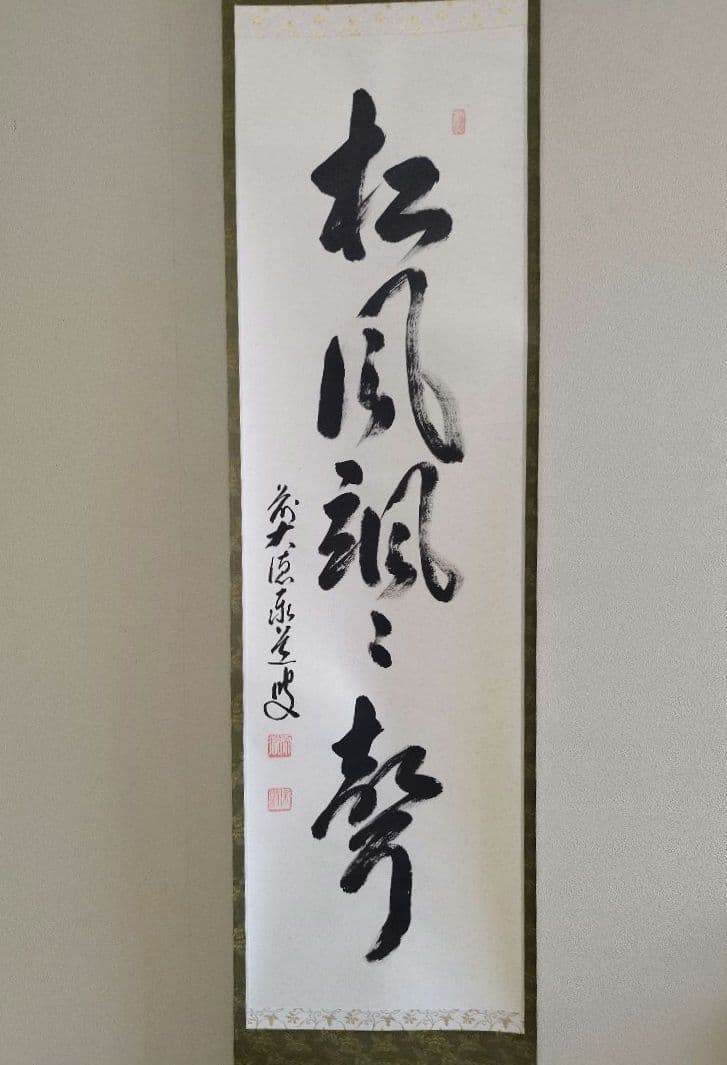 松風颯々聲
前大徳泰道叟